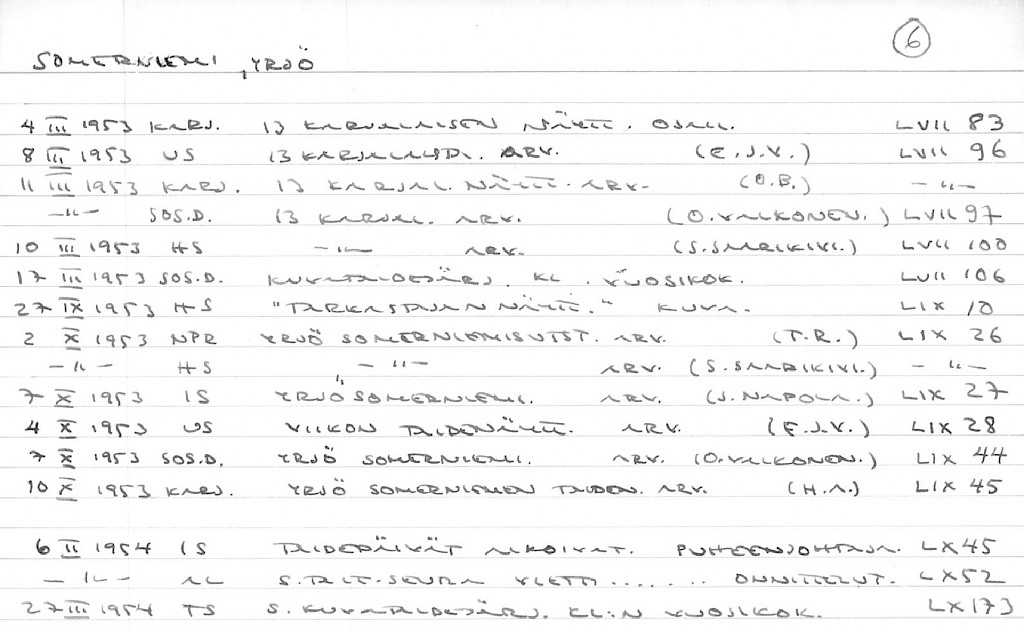 6
SOMERNIEMI, YRJÖ
4 III 1953 KARJ. 13 KARJALAISEN NÄYTT. OSALL. LVII 83
8 III 1953 US 13 KARJALAISTA. ARV. (E.J.V.) LVII 96
11 III 1953 KARJ. 13 KARJAL. NÄYTT. ARV. (O.B.) —"—
—"— SOS.D. 13 KARJAL. ARV. (O.VALKONEN.) LVII 97
10 III 1953 HS —"— ARV. (S.SAARIKIVI.) LVII 100
17 III 1953 SOS.D. KUVATAIDEJÄRJ. KL. VUOSIKOK. LVII 106
27 IX 1953 HS "TARKASTAJAN NÄYTT." KUVA. LIX 10
2 X 1953 NPR YRJÖ SOMERNIEMIS UTST. ARV. (T.R.) LIX 26
—"— HS —"— ARV. (S.SAARIKIVI.) —"—
7 X 1953 IS YRJÖ SOMERNIEMI. ARV. (J.NAPOLA.) LIX 27
4 X 1953 US VIIKON TAIDENÄYTT. ARV. (E.J.V.) LIX 28
7 X 1953 SOS.D. YRJÖ SOMERNIEMI. ARV. (O.VALKONEN.) LIX 44
10 X 1953 KARJ. YRJÖ SOMERNIEMEN TAIDEN. ARV. (H.A.) LIX 45
6 II 1954 IS TAIDEPÄIVÄT ALKOIVAT. PUHEENJOHTAJA. LX 45
—"— AL S.TAIT.SEURA ....... ONNITTELUT. LX 52
27 III 1954 TS S. KUVATAIDEJÄRJ. KL:N VUOSIKOK. LX 173